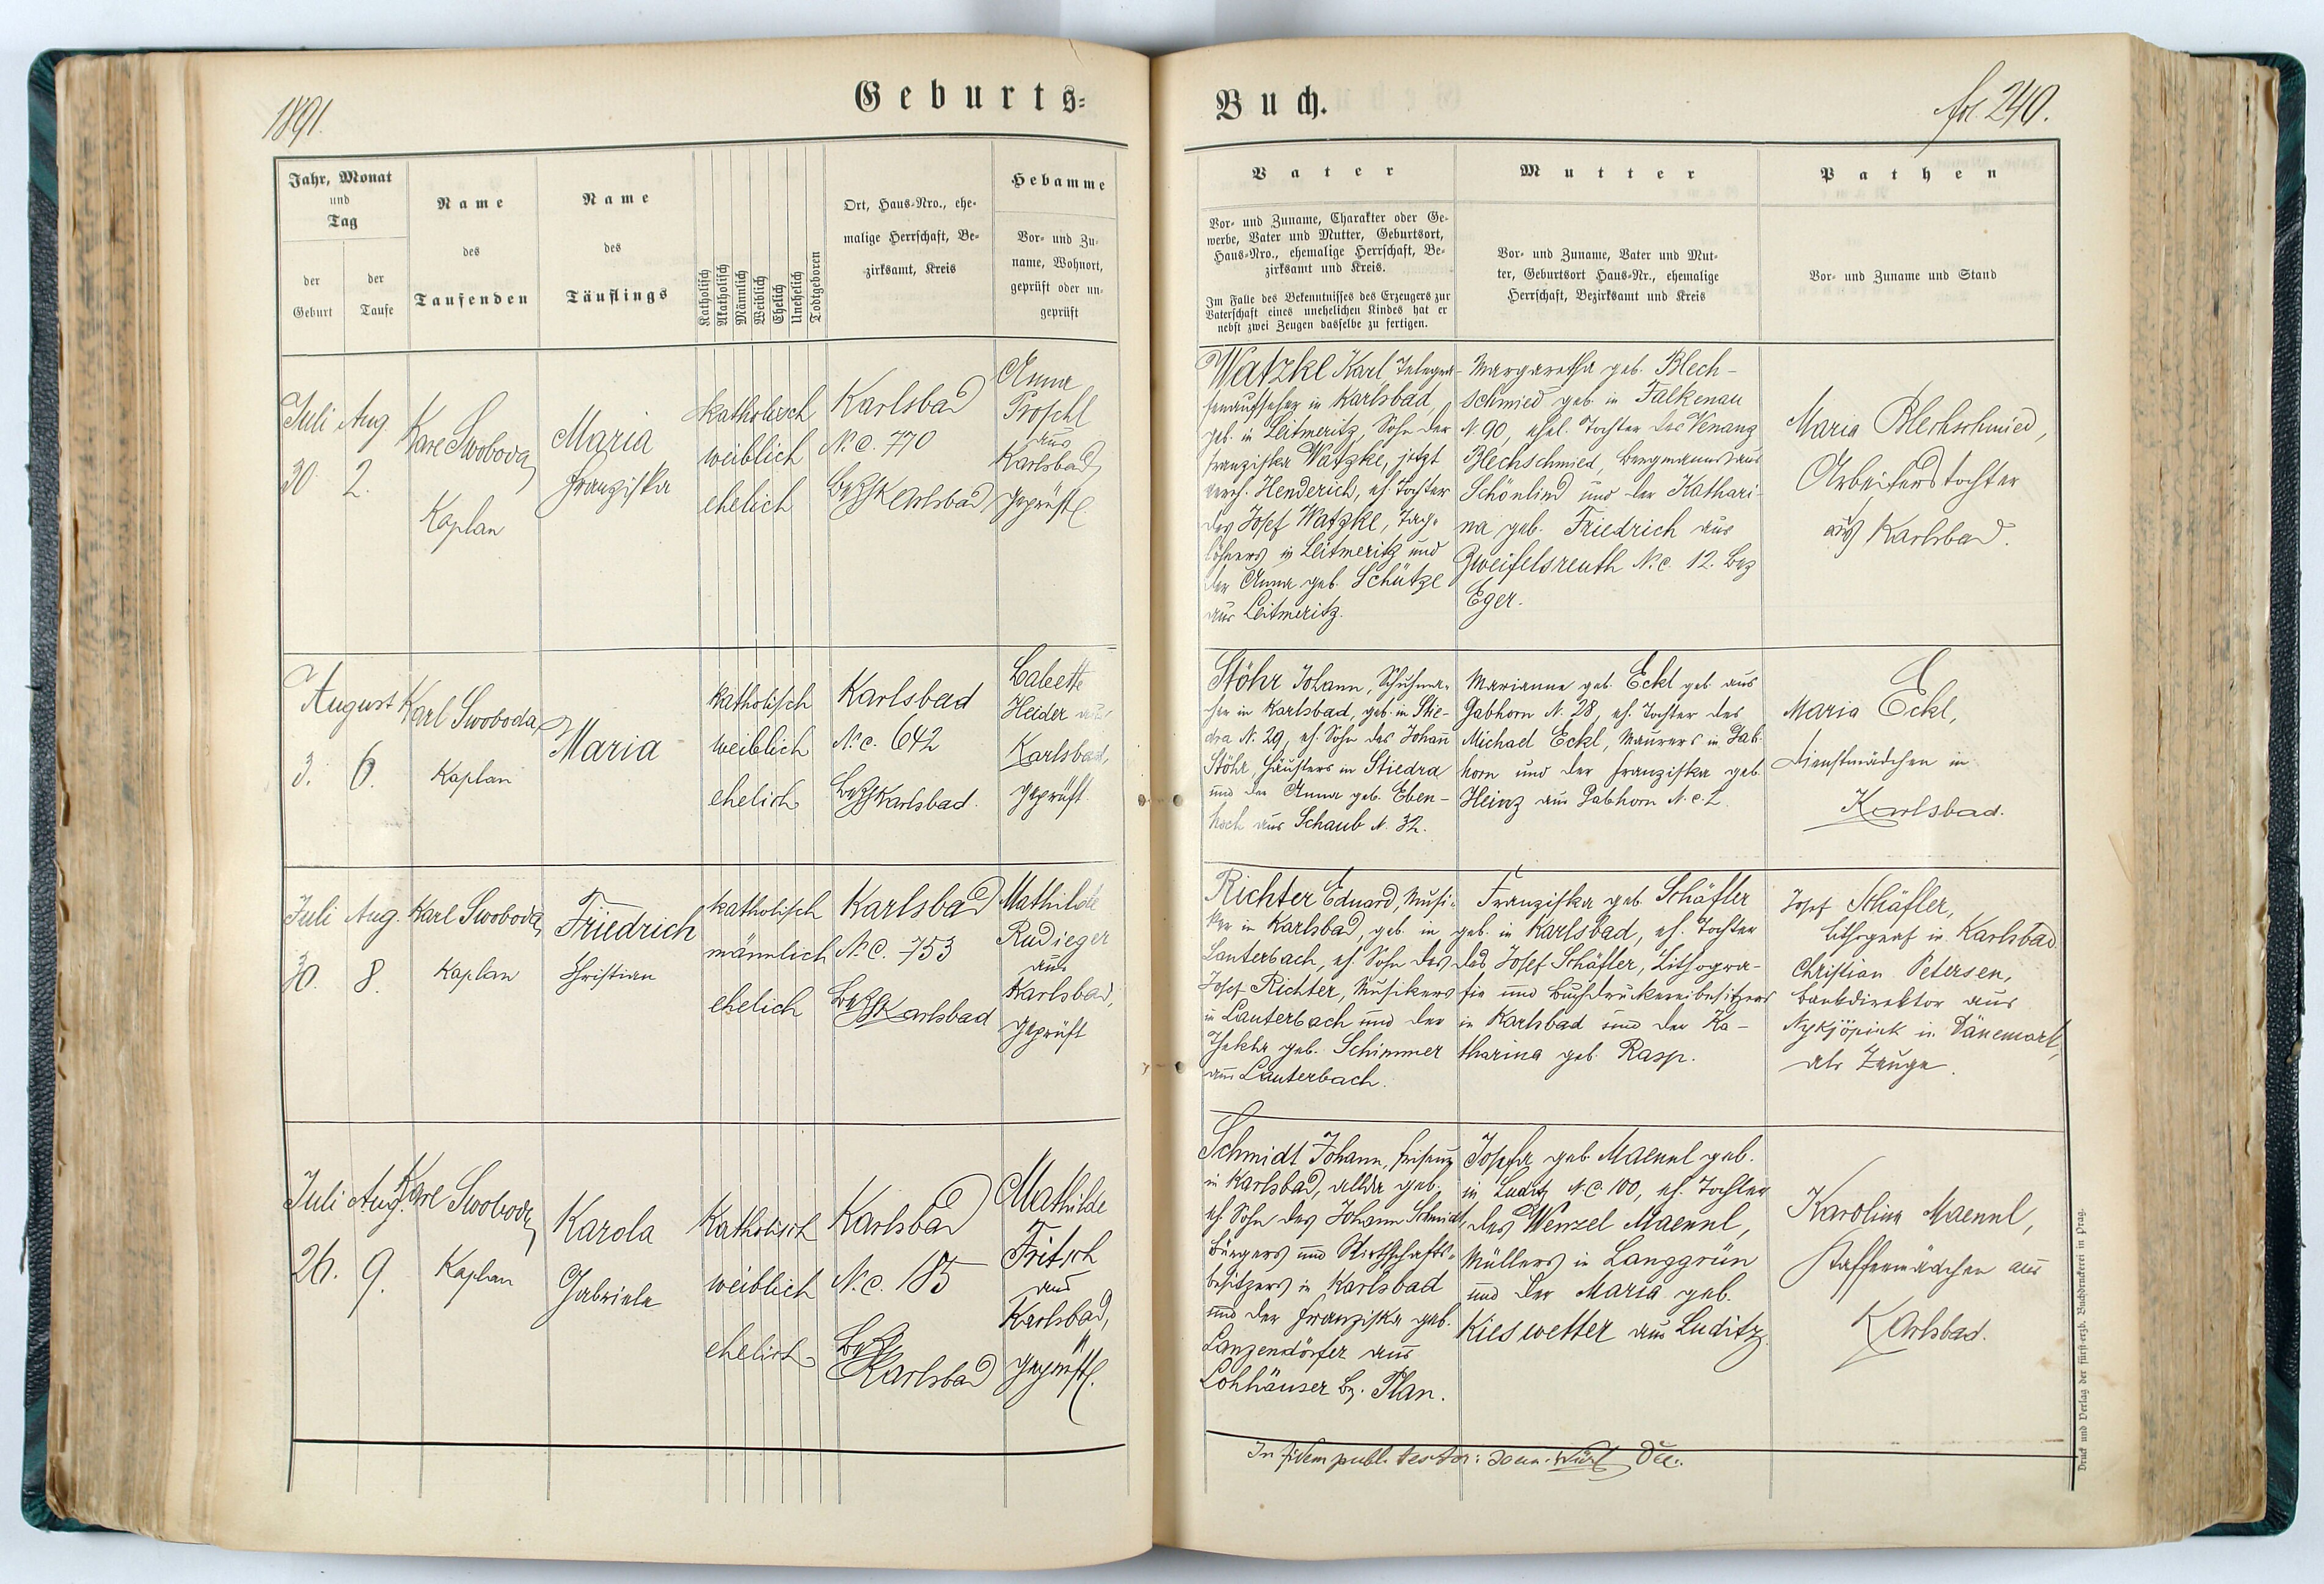 1891.
Geburts-
Jahr, Monat
und
Tag
der
Geburt
der
Taufe
Name
des
Taufenden
Name
des
Täuflings
Katholisch
Akatholisch
Männlich
Weiblich
Ehelich
Unehelich
Todtgeboren
Ort, Haus-Nro., ehe-
malige Herrschaft, Be-
zirksamt, Kreis
Hebamme
Vor- und Zu-
name, Wohnort,
geprüft oder un-
geprüft
Juli Aug.
30. 2.
Karl Swoboda
Kaplan
Maria
Franziska
katholisch
weiblich
ehelich
Karlsbad
N. C. 770
Bez Karlsbad
Anna
Proschl
aus
Karlsbad
geprüft
August
3. 6.
Karl Swoboda
Kaplan
Maria
katholisch
weiblich
ehelich
Karlsbad
N. c. 642
Bez Karlsbad.
Babette
Heider aus
Karlsbad,
geprüft
Juli Aug.
30. 8.
Karl Swoboda
Kaplan
Friedrich
Christian
katholisch
männlich
ehelich
Karlsbad
N. C. 753
Bez Karlsbad
Mathilde
Rudieger
aus
Karlsbad,
geprüft
Juli Aug.
26. 9.
Karl Swoboda
Kaplan
Karola
Gabriele
Katholisch
weiblich
ehelich
Karlsbad
N. c. 185
Bez
Karlsbad
Mathilde
Fritsch
aus
Karlsbad,
geprüft.
Buch.
fol. 240.
Vater
Vor- und Zuname, Charakter oder Ge-
werbe, Vater und Mutter, Geburtsort,
Haus-Nro., ehemalige Herrschaft, Be-
zirksamt und Kreis.
Im Falle des Bekenntnisses des Erzeugers zur
Vaterschaft eines unehelichen Kindes hat er
nebst zwei Zeugen dasselbe zu fertigen.
Mutter
Vor- und Zuname, Vater und Mut-
ter, Geburtsort Haus-Nr., ehemalige
Herrschaft, Bezirksamt und Kreis
Pathen
Vor- und Zuname und Stand
Watzke Karl, Telegra-
fenaufseher in Karlsbad,
geb. in Leitmeritz, Sohn der
Franziska Watzke, jetzt
verh. Henderich, eh. Tochter
des Josef Watzke, Tag-
löhners in Leitmeritz und
der Anna geb. Schütze
aus Leitmeritz.
Margaretha geb. Blech-
schmied geb. in Falkenau
N 90, ehel. Tochter des Venanz
Blechschmied, Bergmanns aus
Schönlind und der Kathari-
na geb. Friedrich aus
Zweifelsreuth N. c. 12. Bez
Eger.
Maria Blechschmied,
Arbeiterstochter
aus Karlsbad.
Stöhr Johann, Schuhma-
cher in Karlsbad, geb. in Stie-
dra N. 29, eh. Sohn des Johann
Stöhr, Häuslers in Stiedra
und der Anna geb. Eben-
hoch aus Schaub N. 32.
Marianne geb. Eckl geb. aus
Gabhorn N. 28, eh. Tochter des
Michael Eckl, Maurers in Gab-
horn und der Franziska geb.
Heinz aus Gabhorn N. c. 2.
Maria Eckl,
Dienstmädchen in
Karlsbad.
Richter Eduard, Musi-
ker in Karlsbad, geb. in
Lauterbach, eh. Sohn des
Josef Richter, Musikers
in Lauterbach und der
Thekla geb. Schimmer
aus Lauterbach.
Franziska geb. Schäfler
geb. in Karlsbad, eh. Tochter
des Josef Schäfler, Lithogra-
fie und Buchdruckereibesitzers
in Karlsbad und der Ka-
tharina geb. Rasp.
Josef Schäfler,
Lithograf in Karlsbad
Christian Petersen,
Bankdirektor aus
in Dänemark,
als Zeuge.
Schmidt Johann, Friseur
in Karlsbad, allda geb.
eh. Sohn des Johann Schmidt,
Bürgers und Wirthschafts-
besitzers in Karlsbad
und der Franziska geb.
Lanzendörfer aus
Lohhäuser Bz. Plan.
Josefa geb. Maennl geb.
in Luditz N. C. 100, eh. Tochter
des Wenzel Maennl,
Müllers in Langgrün
und der Maria geb.
Kieswetter aus Luditz.
Karolina Maennl,
Kaffeemädchen aus
Karlsbad.
In fidem publ. testor:
Druck und Verlag der fürst-erzb. Buchdruckerei in Prag.